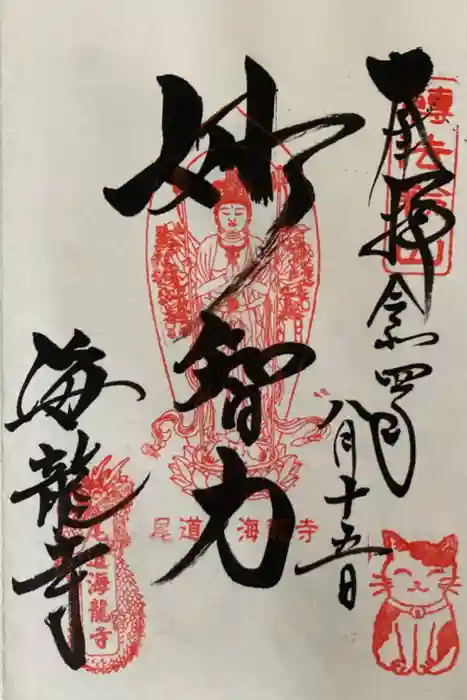 奉拝
轉法輪山
令和四年
八月十五日
妙智力
尾道 海龍寺
海龍寺
尾道海龍寺